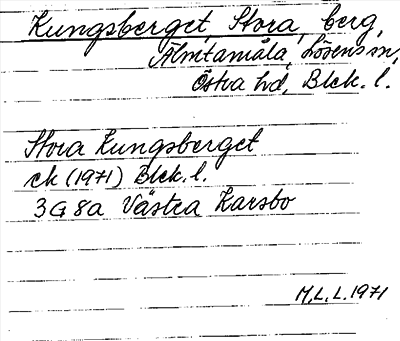 Kungsberget, Stora, berg,
Älmtamåla, Lösens sn,
Östra hd, Blek. l.
Stora Kungsberget
ek (1971) Blek. l.
3G 8a Västra Karsbo
M.L.L. 1971